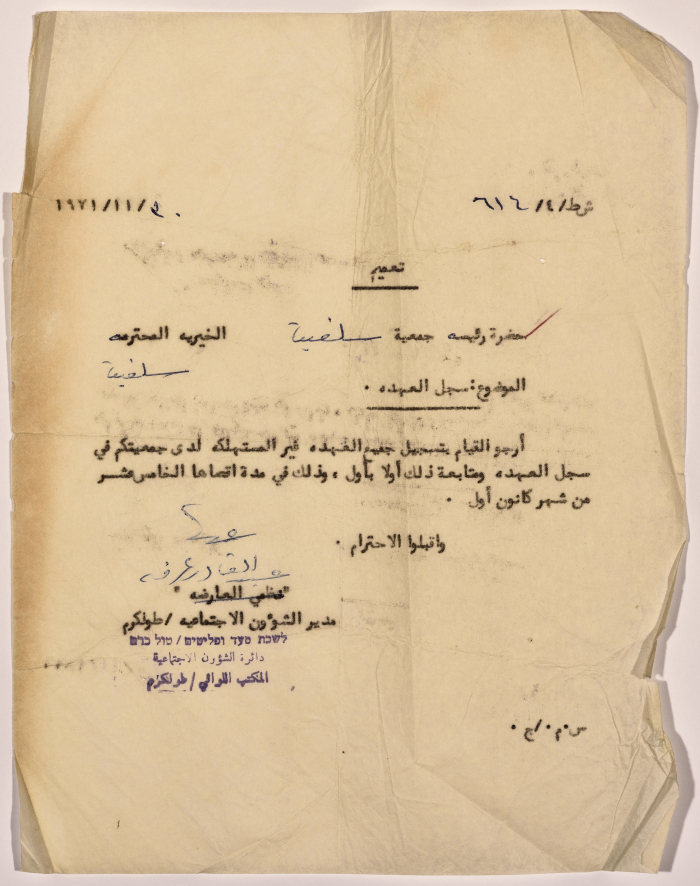 ش ط/٤/٦١٤
٣٠/١١/١٩٧١
تعميم
حضرة رئيسه جمعية سلفيت الخيريه المحترمه
سلفيت
الموضوع: سجل العهده .
أرجو القيام بتسجيل جميع العهده غير المستهلكه لدى جمعيتكم في
سجل العهده ومتابعة ذلك أولا بأول ، وذلك في مدة اقصاها الخامس عشر
من شهر كانون أول .
واقبلوا الاحترام .
عبد القادر عرفه
" نظمي العارضه "
مدير الشؤون الاجتماعيه /طولكرم
לשכת סעד ופליטים / טול כרם
دائرة الشؤون الاجتماعية
المكتب اللوائي / طولكرم
س.م./ج .